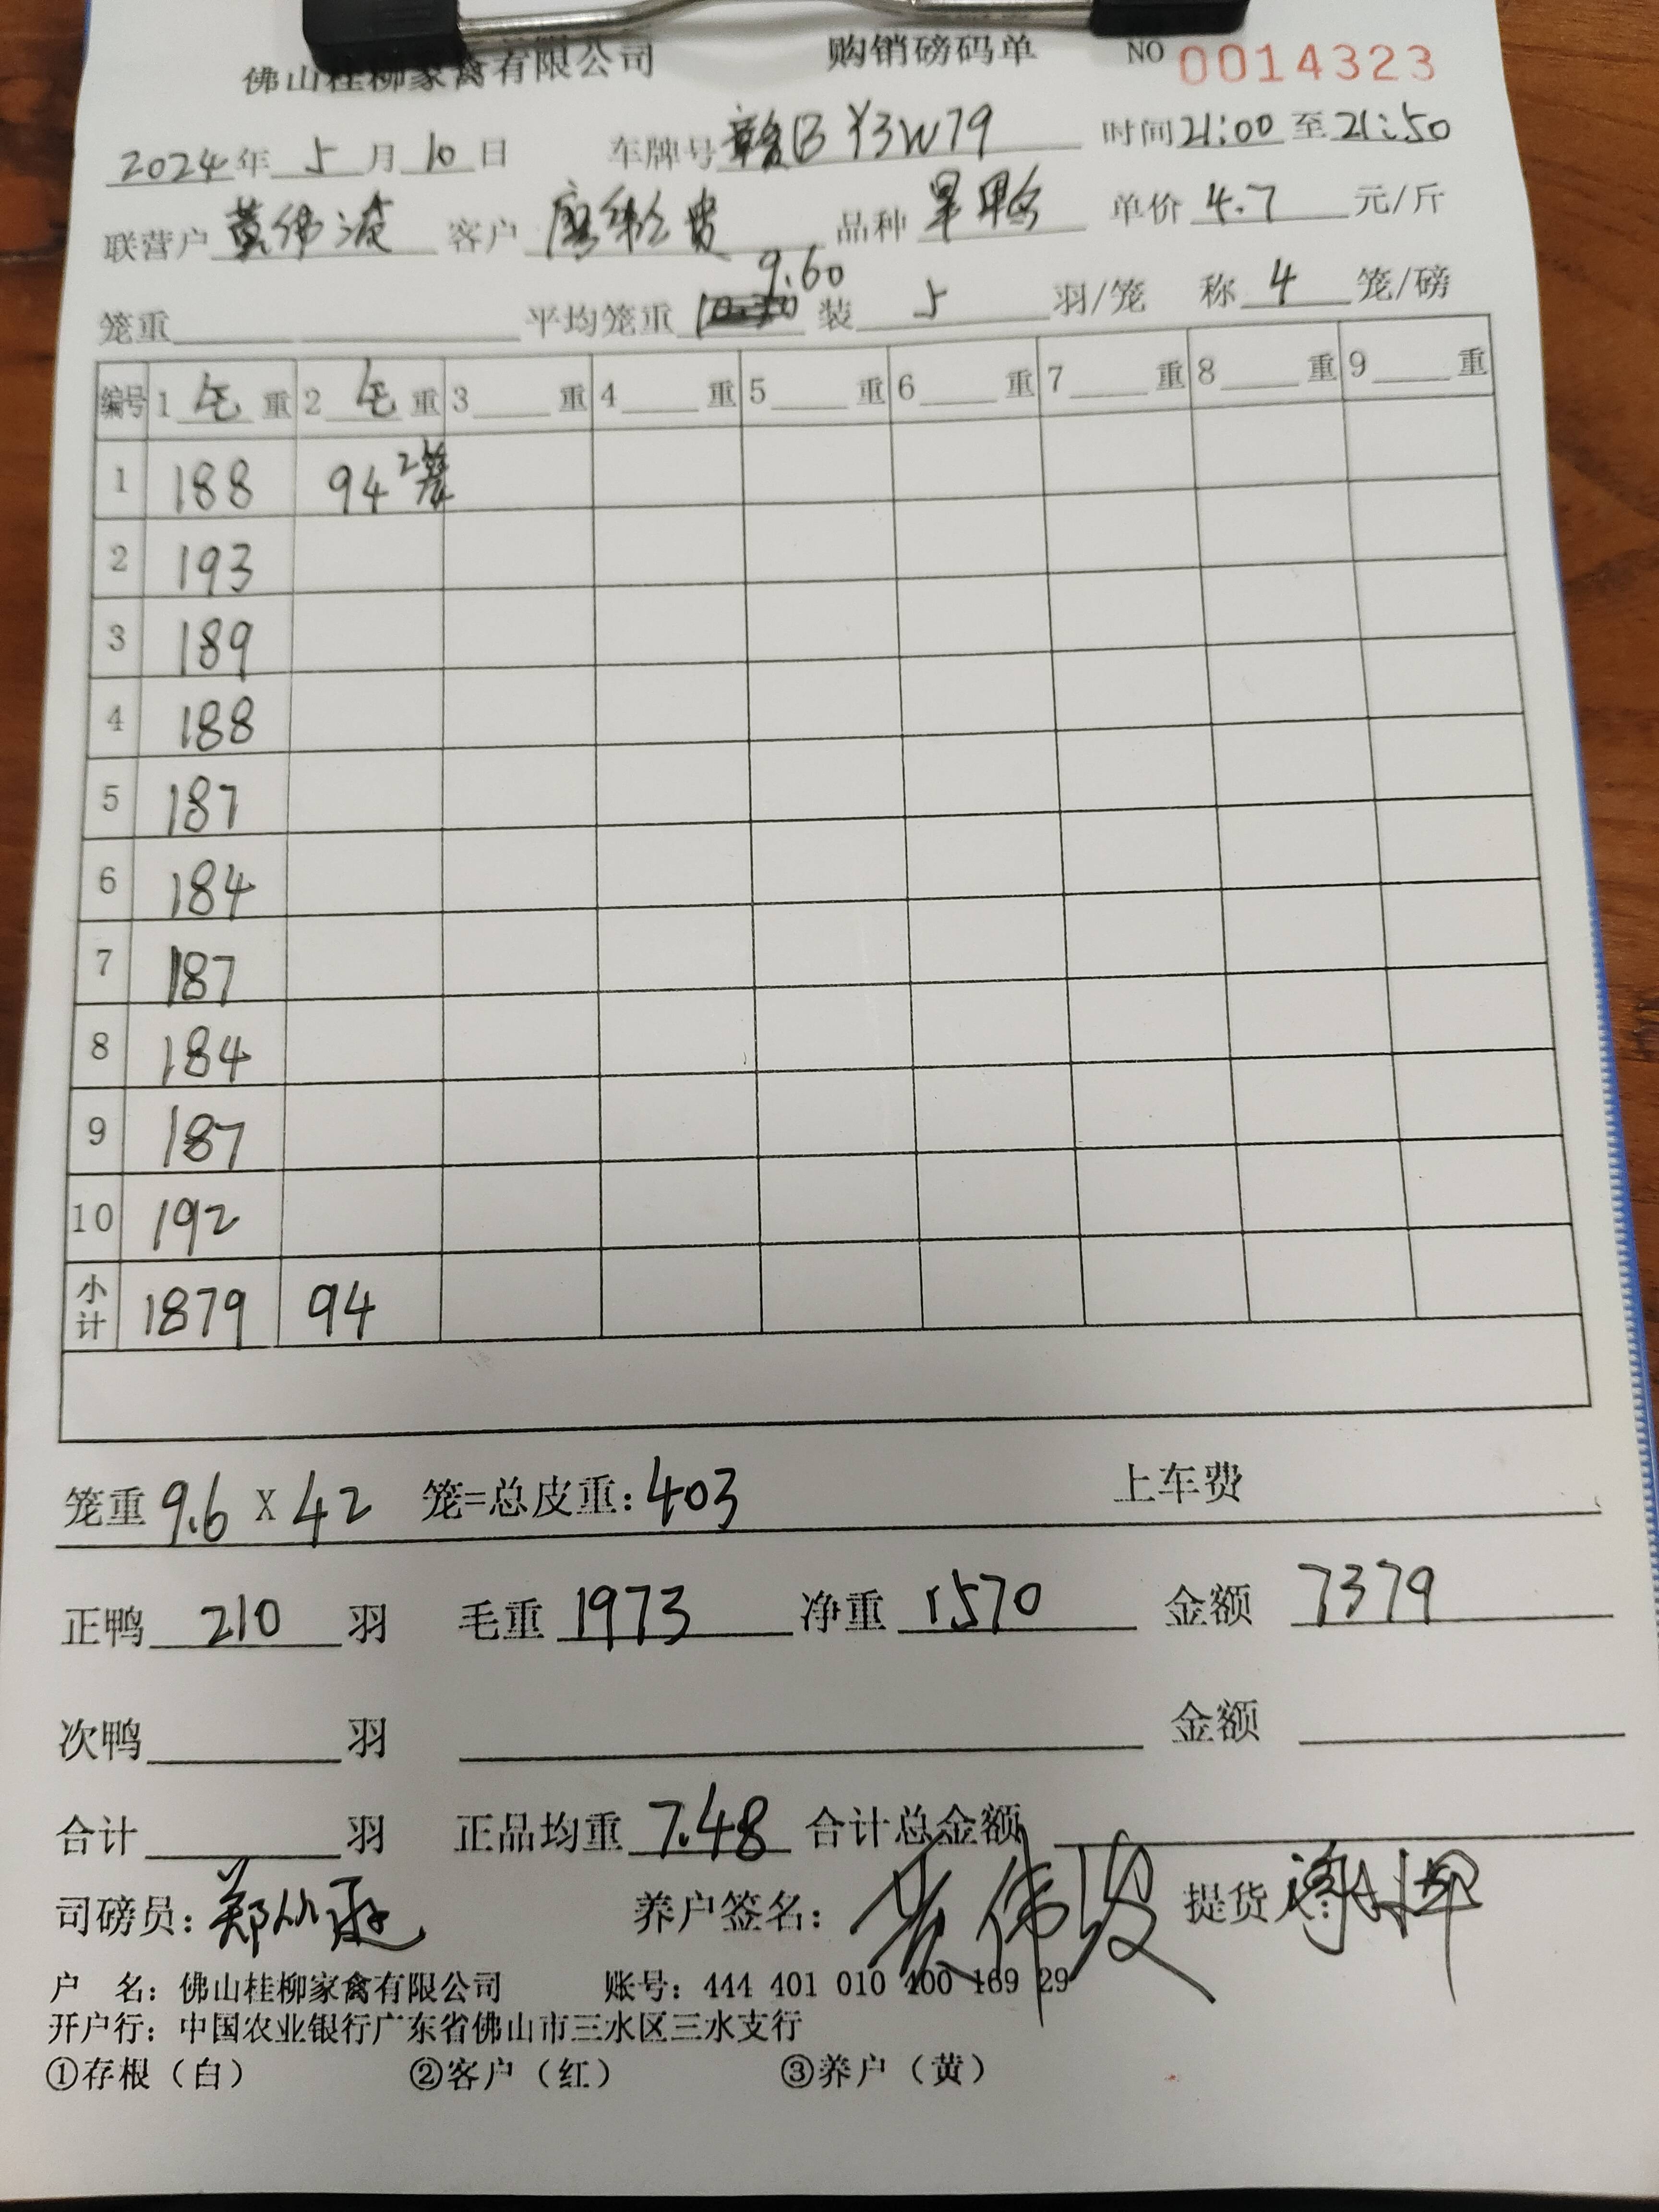 佛山桂柳家禽有限公司 购销磅码单 NO 0014323
2024年 5 月 10 日 车牌号 赣B Y3W79 时间 21:00 至 21:50
联营户 黄伟波 客户 品种 旱鸭 单价 4.7 元/斤
9.60
笼重 平均笼重 装 5 羽/笼 称 4 笼/磅
编号 1 毛 重 2 毛 重 3 重 4 重 5 重 6 重 7 重 8 重 9 重
1 188 94 2笼
2 193
3 189
4 188
5 187
6 184
7 187
8 184
9 187
10 192
小计 1879 94
笼重 9.6 X 42 笼=总皮重: 403 上车费
正鸭 210 羽 毛重 1973 净重 1570 金额 7379
次鸭 羽 金额
合计 羽 正品均重 7.48 合计总金额
司磅员: 养户签名: 黄伟波 提货人:
户 名: 佛山桂柳家禽有限公司 账号: 444 401 010 400 169 29
开户行: 中国农业银行广东省佛山市三水区三水支行
①存根（白） ②客户（红） ③养户（黄）